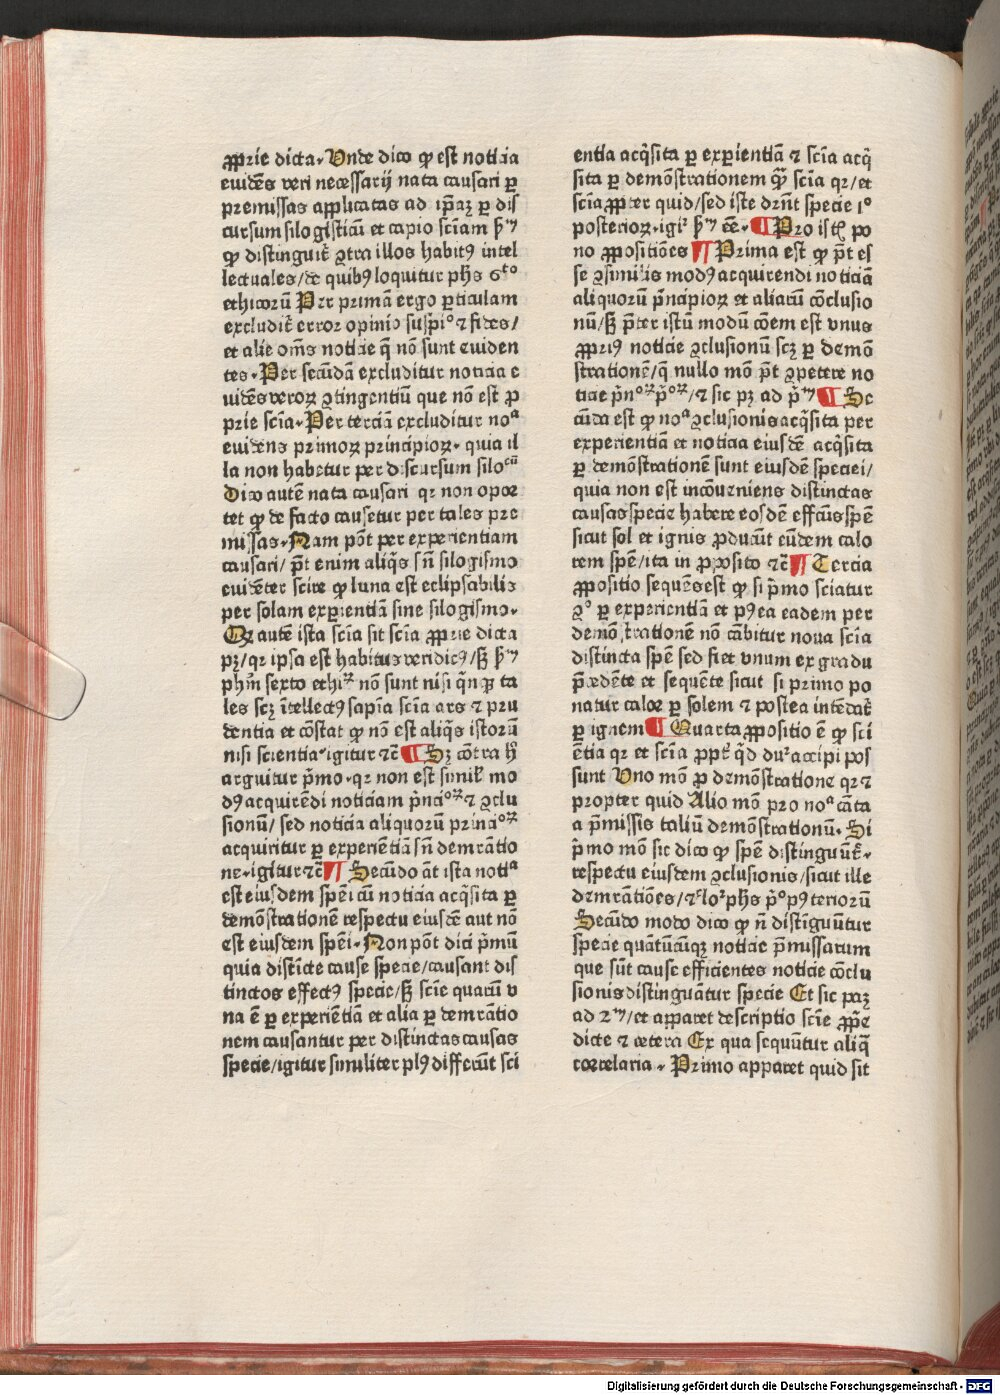 ꝓprie dicta. Unde dico ꝙ est noticia
euidēs veri necessarij nata causari ꝑ
premissas applicatas ad ip̄aꝫ ꝑ dis
cursum silogisticū et capio sciam
ꝙ distinguit᷑ ꝯtra illos habitꝰ intel
lectuales/de quibꝰ loquitur ph̄s 6ᵗᵒ
ethicorū Per primā ergo ꝑticulam
excludit᷑ error opinio suspi͛ᵒ ⁊ fides/
et alie om̄s noticie q̄ nō sunt euiden
tes. Per scd̄am excluditur noticia e
uidēs veroꝝ ꝯtingentiū que nō est ꝓ
prie scīa. Per terciā excluditur noᵃ
euidens primoꝝ principioꝝ. quia il
la non habetur per discursum silo
Dico autē nata causari qꝛ non opor
tet ꝙ de facto causetur per tales pre
missas. Nam pōt per experientiam
causari/ p̄t enim aliq̄s sn̄ silogismo
euidēter scire ꝙ luna est eclipsabilis
per solam experientiā sine silogismo.
Qꝫ autē ista scīa sit scīa ꝓprie dicta
pꝫ/qꝛ ipsa est habitus veridicꝰ/sꝫ
ph̄m sexto ethiꝝ nō sunt nisi q̄nqꝫ ta
les scꝫ ītellectꝰ sapīa scīa ars ⁊ pru
dentia et cōstat ꝙ nō est aliq̄s istorū
nisi scientia igitur ⁊c̄ ¶ Sꝫ cōtra h
arguitur p̄mo. qꝛ non est simil᷑ mo
dꝰ acquirēdi noticiam p̄nciᵒꝝ ⁊ ꝯclu
sionū/ sed noticia aliquorū princiᵒꝝ
acquiritur ꝑ experiētiā sn̄ demr̄atio
ne. igitur ⁊c̄ ¶ Secūdo āt ista notiᵃ
est eiusdem spēi cū noticia acq̄sita ꝑ
demōstrationē respectu eiusdē aut nō
est eiusdem spēi. Non pōt dici p̄mū
quia distīcte cause specie/causant dis
tinctos effectꝰ specie/sꝫ scīe quarū v
na ē ꝑ experiētiā et alia ꝑ demr̄atio
nem causantur per distinctas causas
specie/igitur similiter plꝰ differūt sci
entia acq̄sita ꝑ experientiā ⁊ scīa acq̄
sita ꝑ demōstrationem qꝛ scīa qꝛ/et
scīa ꝓpter quid/sed iste dr̄nt specie 1ᵒ
posterioꝝ. igi͛ ēē. ¶ Pro isto po
no ꝓpositiōes ¶ Prima est ꝙ p̄t es
se ꝯsimilis modꝰ acquirendi noticiā
aliquorū p̄ncipioꝝ et aliarū cōclusio
nū/sꝫ p̄ter istū modū cōem est vnus
ꝓpriꝰ noticie ꝯclusionū scꝫ ꝑ demō
strationē/q̄ nullo mō p̄t ꝯpetere no
ticie p̄nᵒꝝ p̄ᵒꝝ/⁊ sic pꝫ ad ¶ Se
cūda est ꝙ noᵃ ꝯclusionis acq̄sita per
experientiā et noticia eiusdē acq̄sita
ꝑ demōstrationē sunt eiusdē speciei/
quia non est incōueniens distinctas
causas specie habere eosdē effcūs spē
sicut sol et ignis ꝓducūt eūdem calo
rem spē/ita in ꝓposito ⁊c̄ ¶ Tercia
ꝓpositio sequēs est ꝙ si p̄mo sciatur
ꝯᵒ ꝑ experientiā et pꝰea eadem per
demōstrationē nō cābitur noua scīa
distincta spē sed fiet vnum ex gradu
p̄cedēte et sequēte sicut si primo po
natur calor ꝑ solem ⁊ postea intēdat᷑
ꝑ ignem ¶ Quarta ꝓpositio ē ꝙ sci
ētia qꝛ et scīa ꝓpt᷑ q̄d accipi pos
sunt Uno mō ꝓ demōstratione qꝛ ⁊
propter quid Alio mō pro noᵃ cāta
a p̄missis taliū demōstrationū. Si
p̄mo mō sic dico ꝙ spē distinguūt᷑.
respectu eiusdem ꝯclusionis/sicut ille
demr̄atiōes/ ph̄s p̄ᵒ pꝰteriorū
Secūdo modo dico ꝙ n̄ distīguūtur
specie quātūcūqꝫ noticie p̄missarum
que sūt cause efficientes noticie cōclu
sionis distinguātur specie Et sic patꝫ
ad 2ᵐ/et apparet descriptio scīe ꝓp̄e
dicte ⁊ cetera Ex qua sequūtur aliq̄
correlaria. Primo apparet quid sit
Digitalisierung gefördert durch die Deutsche Forschungsgemeinschaft - DFG